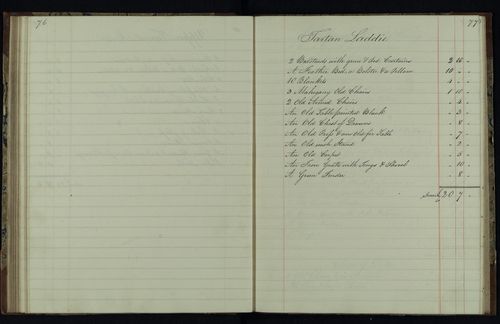 76
77
Tartan Laddie
2 Bedsteads with green & dit Curtains 2 10 -
A Feather Bed, a Bolster & a Pillow 10 - -
10 Blankets 4 - -
3 Mahogany Old Chairs 1 10 -
2 Old Chairs - 4 -
An Old Table painted Black - 3 -
An Old Chest of Drawers - 8 -
An Old Press & an Old Table - 7 -
An Old Stand - 2 -
An Old Carpet - 5 -
An Iron Grate with Tongs & Shovel - 10 -
A Green Fender - 8 -
20 7 -